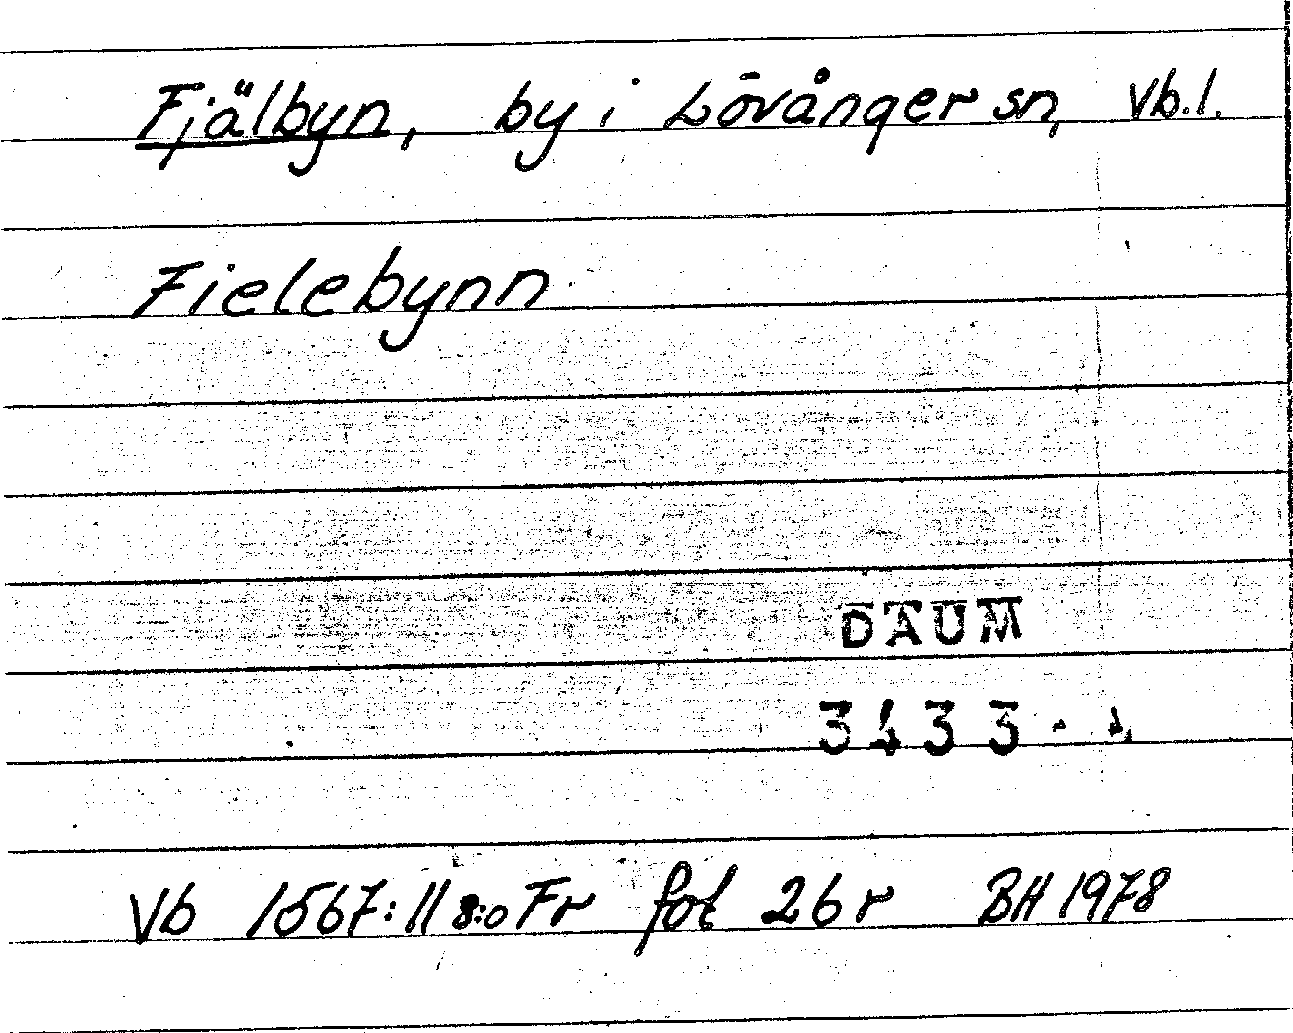 Fjälbyn, by i Lövånger sn, Vb.l.
Fielebynn
DAUM
3433
Vb 1567:11 8:o Fr fot 26 r BH 1978